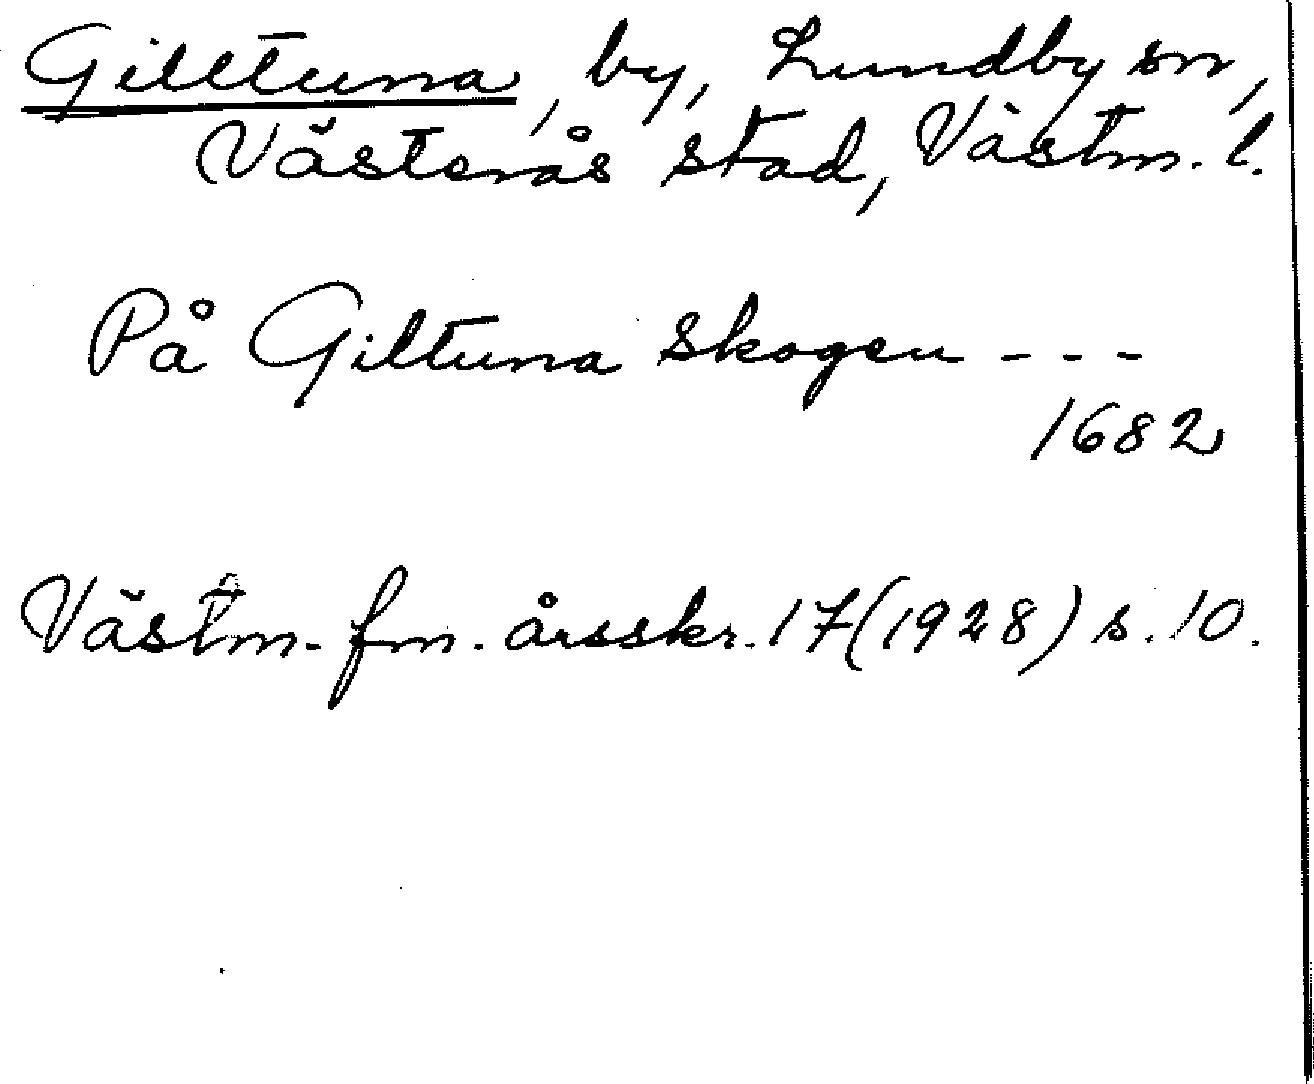 Gilltuna, by, Lundby sn,
Västerås stad, Västm. l.
På Giltuna skogen - - -
1682
Västm. fm. årsskr. 17 (1928) s. 10.